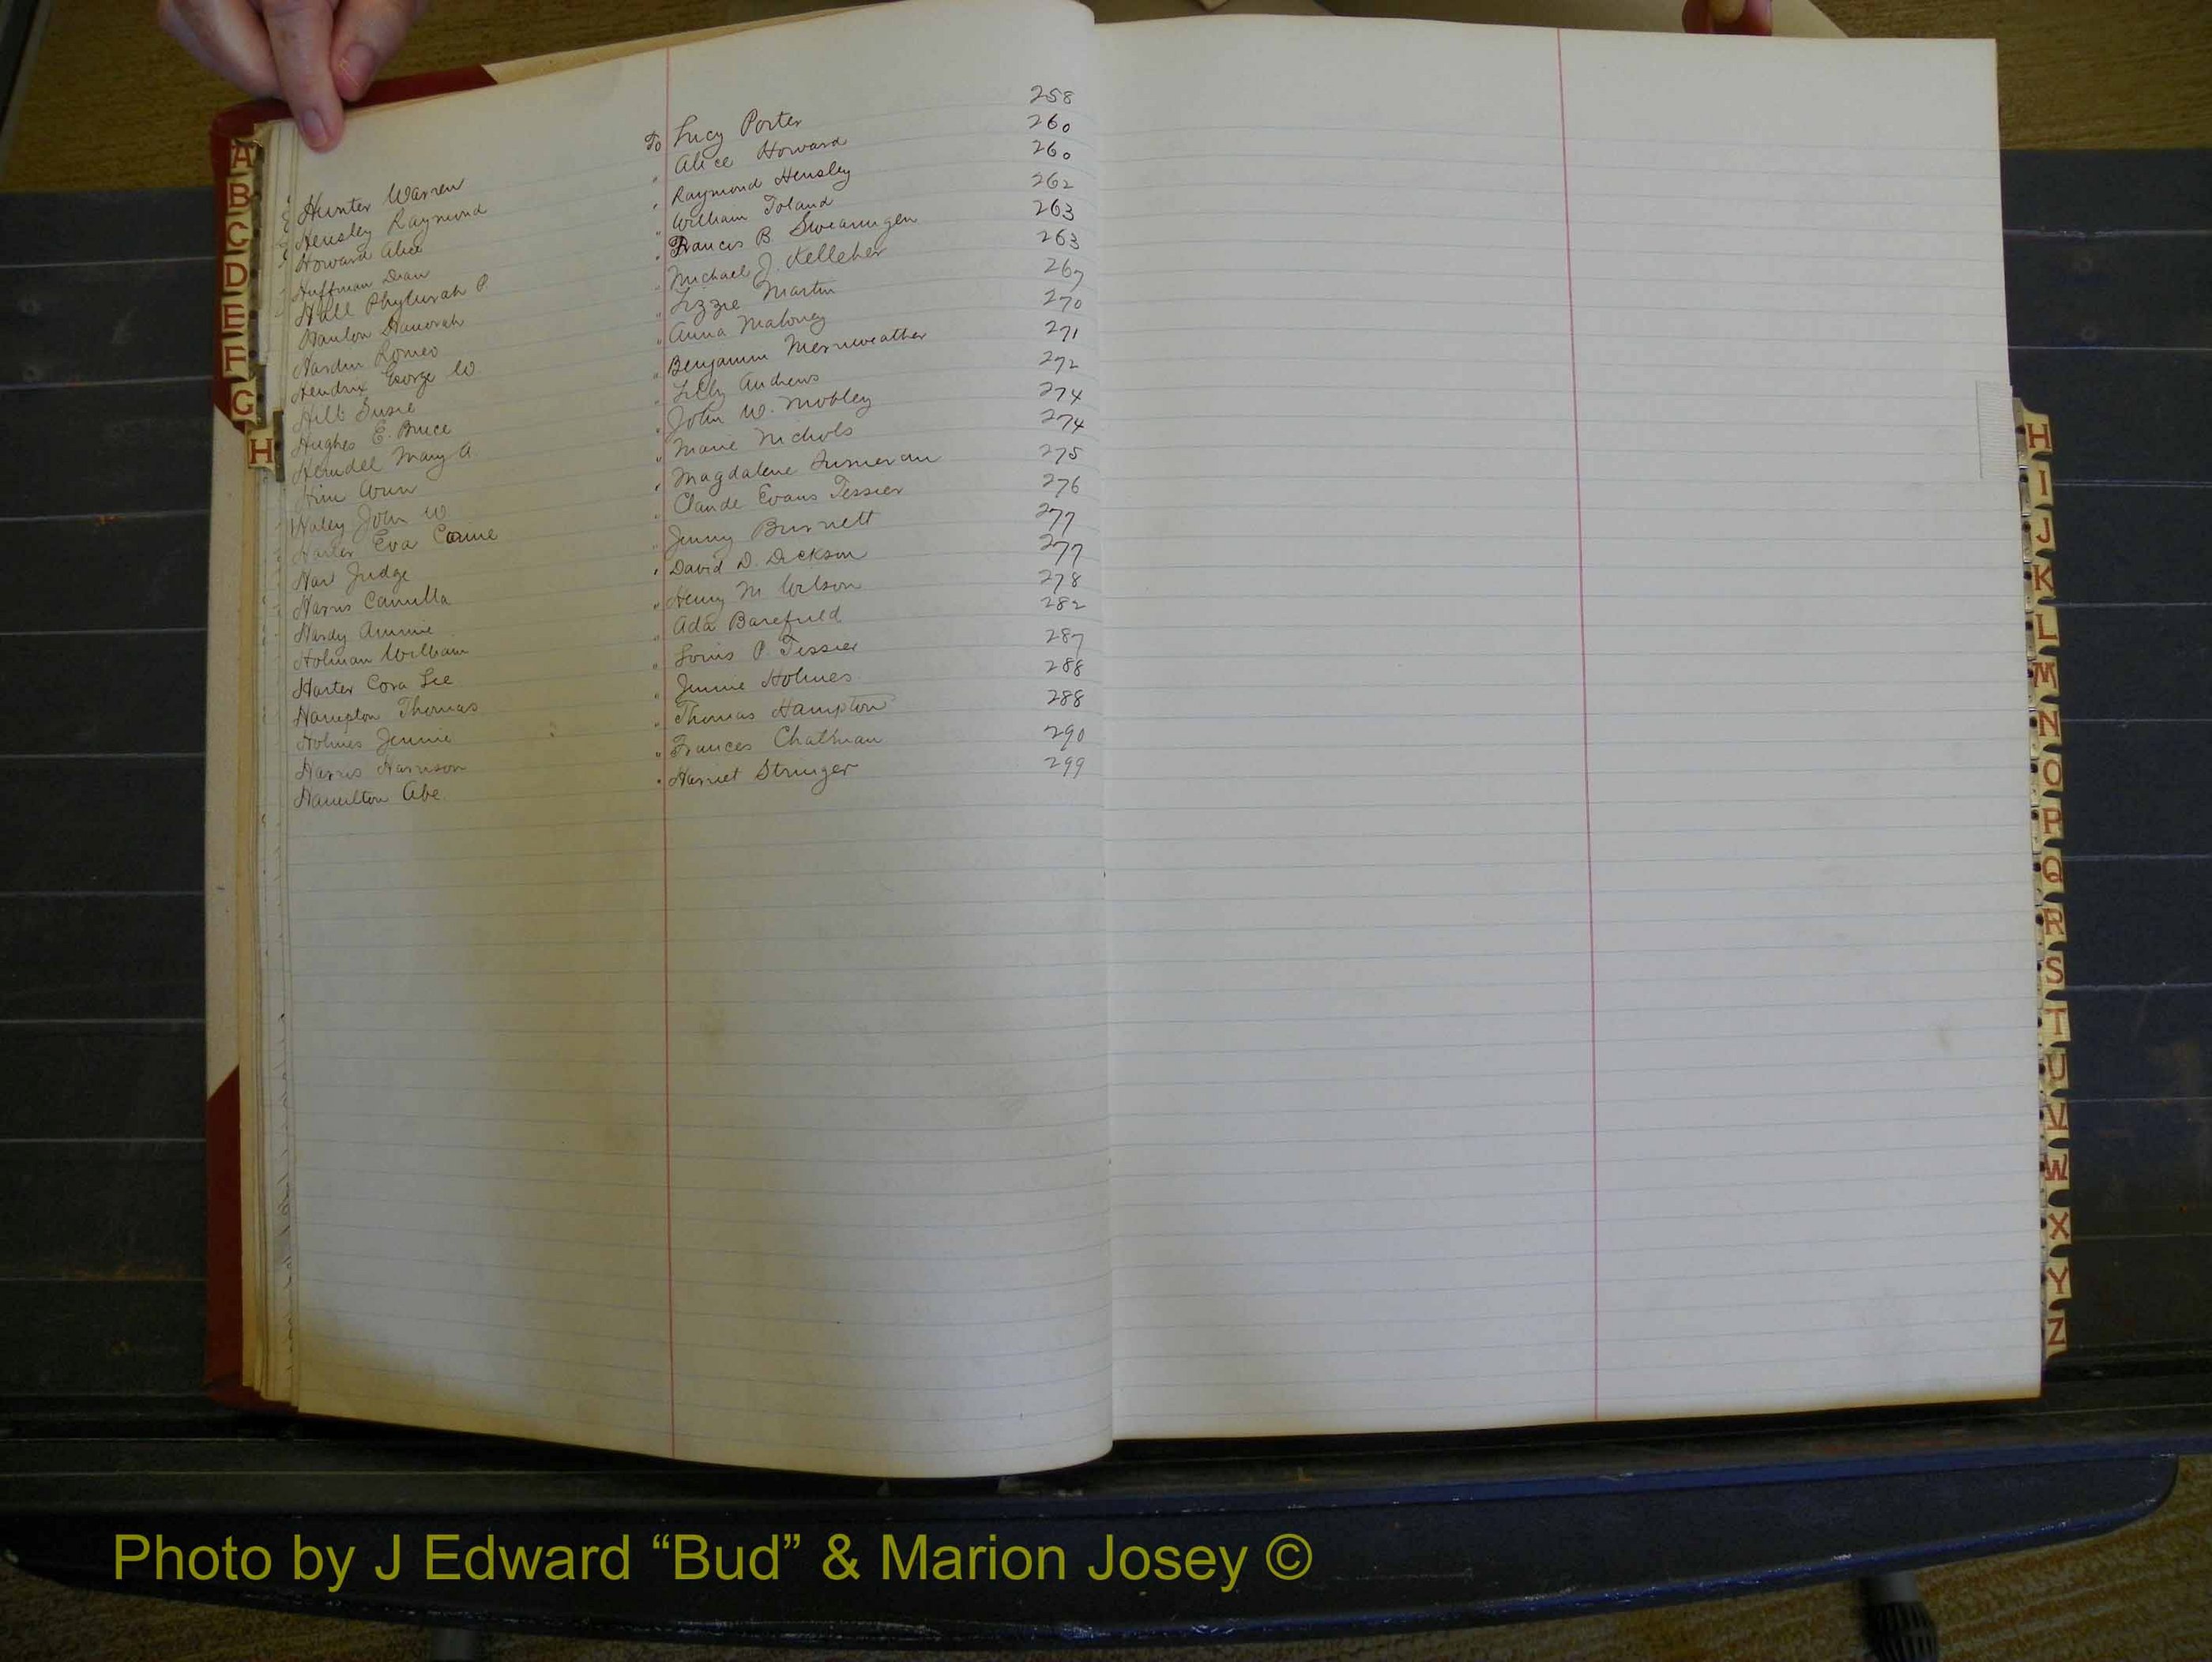 Hunter Warren To Lucy Porter 258
Hensley Raymond " Alice Howard 260
Howard Alice " Raymond Hensley 260
Huffman Dean " William Toland 262
Hall P. " Francis B. Swearingen 263
Hanlon Hanorah " Michael J. Kelleher 263
Hardin Romeo " Lizzie Martin 267
Hendrix George W " Anna Maloney 270
Hill Susie " Benjamin Merriweather 271
Hughes E. Bruce " Lilly Andrews 272
Mary A. " John W. Mobley 274
Ann " Marie Nichols 274
Haley John W " Magdalene 275
Harter Eva Carrie " Claude Evans Tessier 276
Hart Judge " Jenny Burnett 277
Harris Camilla " David D. Dickson 277
Hardy Ammie " Henry M Wilson 278
Holman William " Ada Barefield 282
Harter Cora Lee " Louis P. Tessier 287
Hampton Thomas " Jennie Holmes 288
Holmes Jennie " Thomas Hampton 288
Harris Harrison " Frances Chatman 290
Hamilton Abe " Harriet Stringer 299
A
B
C
D
E
F
G
H
H
I
J
K
L
M
N
O
P
Q
R
S
T
U
V
W
X
Y
Z
Photo by J Edward “Bud” & Marion Josey ©